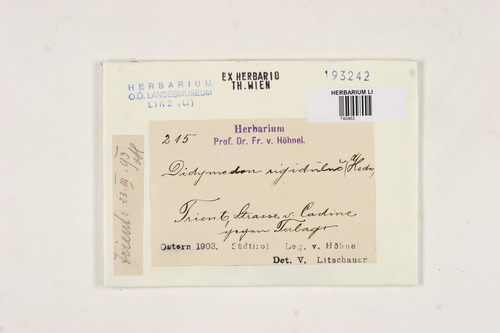 EX HERBARIO
TH. WIEN
193242
HERBARIUM
O.Ö. LANDESMUSEUM
LINZ (LI)
HERBARIUM LI
740463
215
Herbarium
Prof. Dr. Fr. v. Höhnel.
Didymodon rigidulus Hedw.
Trient, Strasse v. Cadine
gegen Terlago
Ostern 1903. Südtirol Leg. v. Höhnel
Det. V. Litschauer
23. III. 93